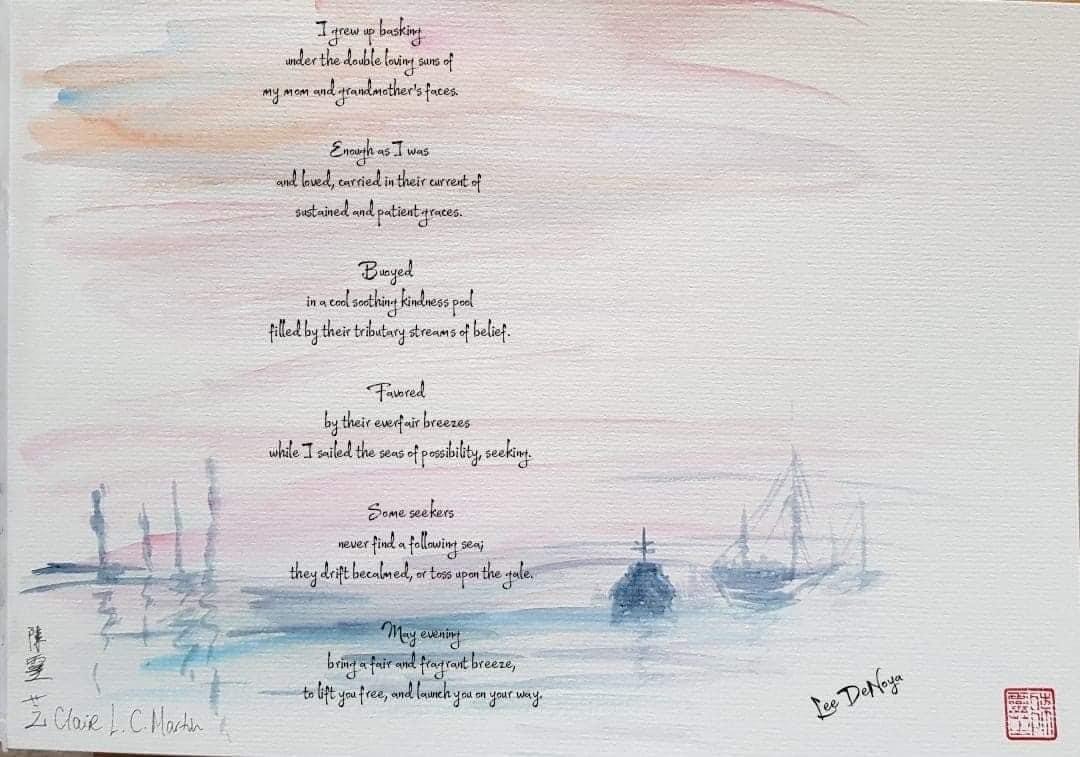 I grew up basking
under the double loving suns of
my mom and grandmother's faces.
Enough as I was
and loved, carried in their current of
sustained and patient graces.
Buoyed
in a cool soothing kindness pool
filled by their tributary streams of belief.
Favored
by their everfair breezes
while I sailed the seas of possibility, seeking.
Some seekers
never find a following sea;
they drift becalmed, or toss upon the gale.
May evening
bring a fair and fragrant breeze,
to lift you free, and launch you on your way.
Lee DeNoya
陳
靈
芸
Claire L. C. Martin